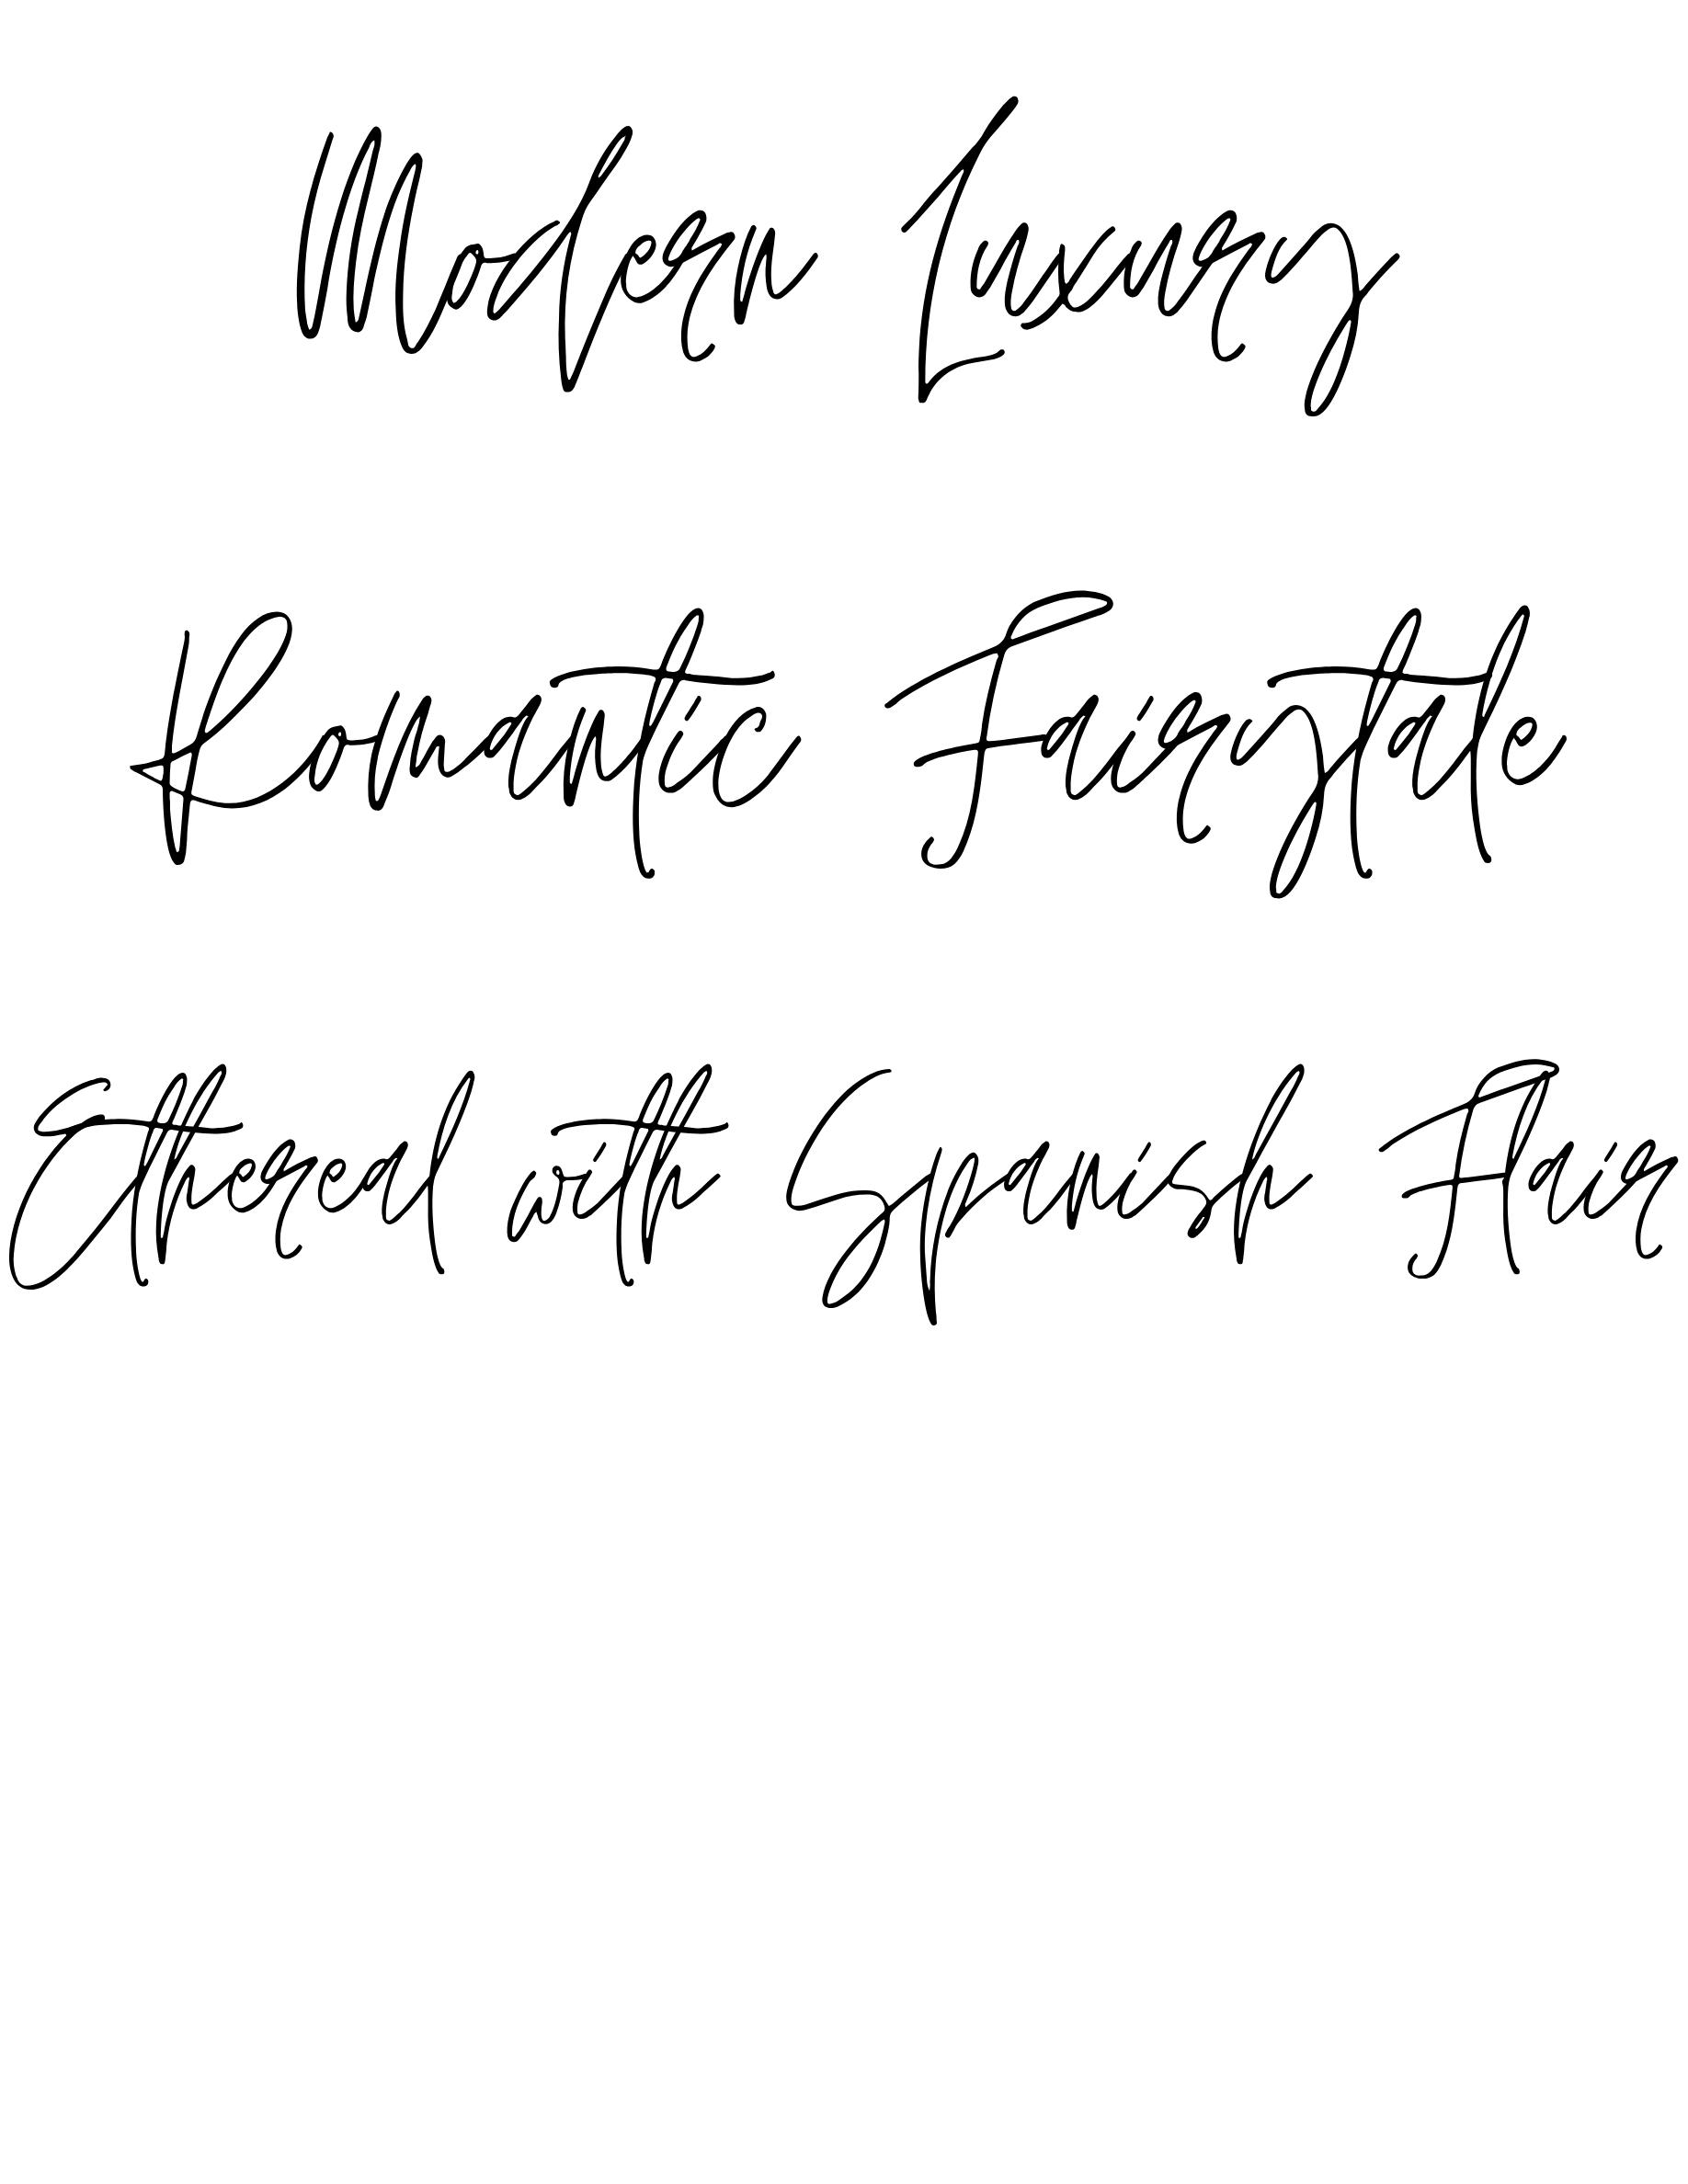 Modern Luxury
Romantic Fairytale
Ethereal with Spanish Flair